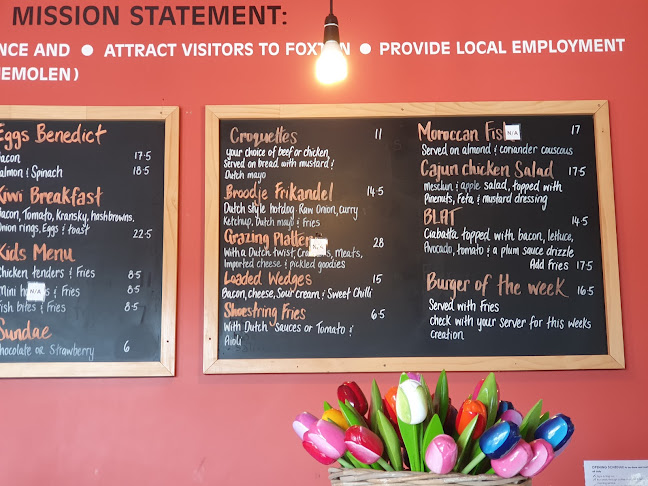 MISSION STATEMENT:
NCE AND ● ATTRACT VISITORS TO FOXTON ● PROVIDE LOCAL EMPLOYMENT
EMOLEN)
Eggs Benedict
Bacon 17.5
Salmon & Spinach 18.5
Kiwi Breakfast
Bacon, Tomato, kransky, hashbrowns,
Onion rings, Eggs & toast
22.5
Kids Menu
Chicken tenders & Fries 8.5
Mini N/A & Fries 8.5
Fish bites & Fries 8.5
Sundae
Chocolate or Strawberry 6
Croquettes 11
your choice of beef or chicken
Served on bread with mustard &
Dutch mayo
Broodje Frikandel 14.5
Dutch style hotdog. Raw Onion, curry
Ketchup, Dutch mayo & Fries
Grazing Platter N/A 28
With a Dutch twist, Meats,
Imported cheese & pickled goodies
Loaded Wedges 15
Bacon, cheese, Sour cream & Sweet Chilli
Shoestring Fries 6.5
With Dutch Sauces or Tomato &
Aioli
Moroccan Fish N/A 17
Served on almond & coriander couscous
Cajun chicken Salad 17.5
Mesclun & apple salad, topped with
Pinenuts, Feta & mustard dressing
BLAT 14.5
Ciabatta topped with bacon, lettuce,
Avocado, tomato & a plum sauce drizzle
Add Fries 17.5
Burger of the week 16.5
Served with Fries
check with your server for this weeks
creation